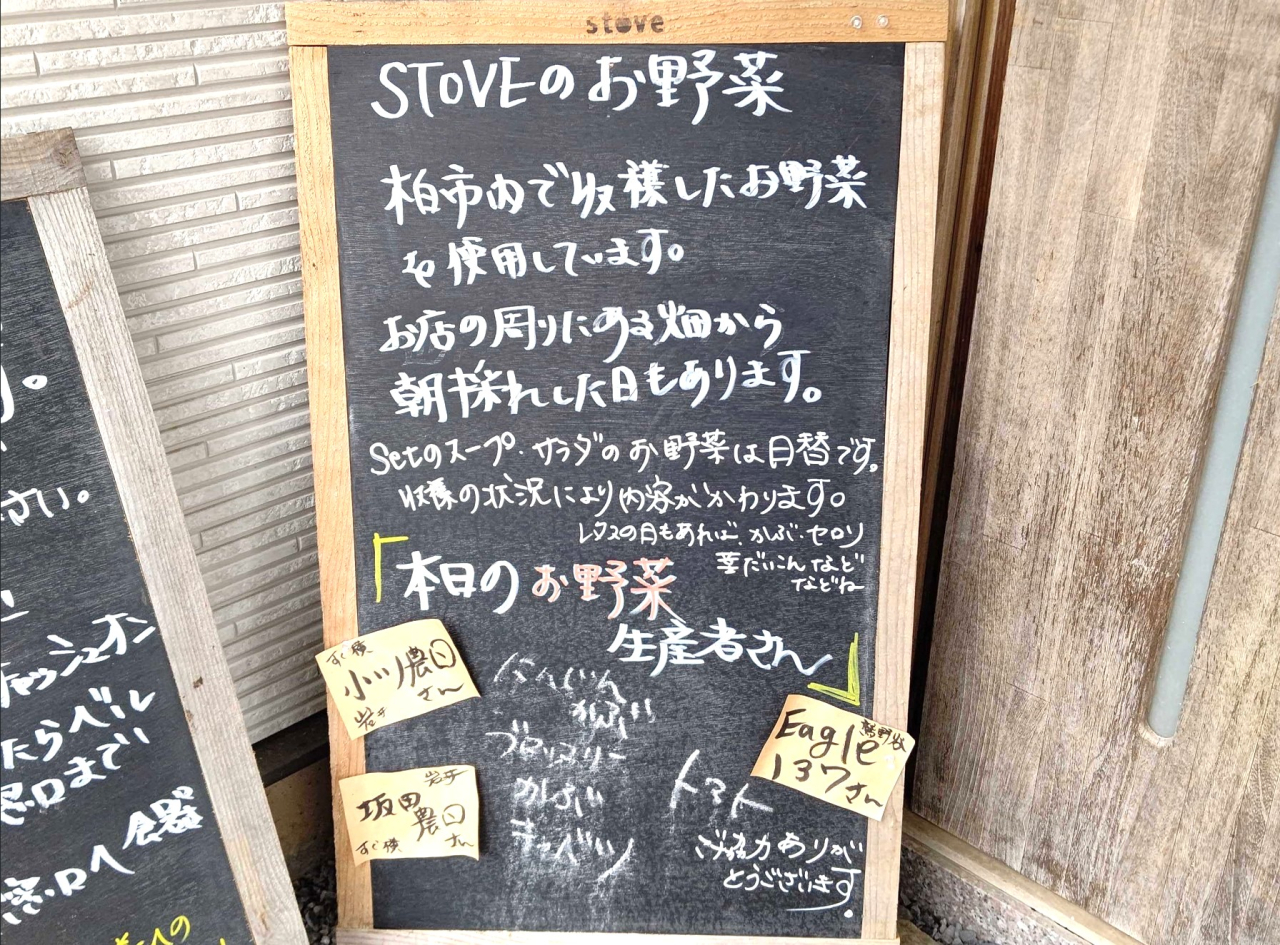 stove
STOVEのお野菜
柏市内で収穫したお野菜
を使用しています。
お店の周りにある畑から
朝採れした日もあります。
Setのスープ・サラダのお野菜は日替です。
収穫の状況により内容がかわります。
レタスの日もあれば、かぶ・セロリ
茎だいこんなど
などね
「本日のお野菜
生産者さん」
すぐ横
小川農園
さん
岩井
岩井
坂田
農園
すぐ横
さん
にんじん
かぶ
ブロッコリー
かぶ
キャベツ
トマト
Eagle
137さん
ご協力ありが
とうございます。
さい。
たらベル
窓口まで
食器
窓口へ